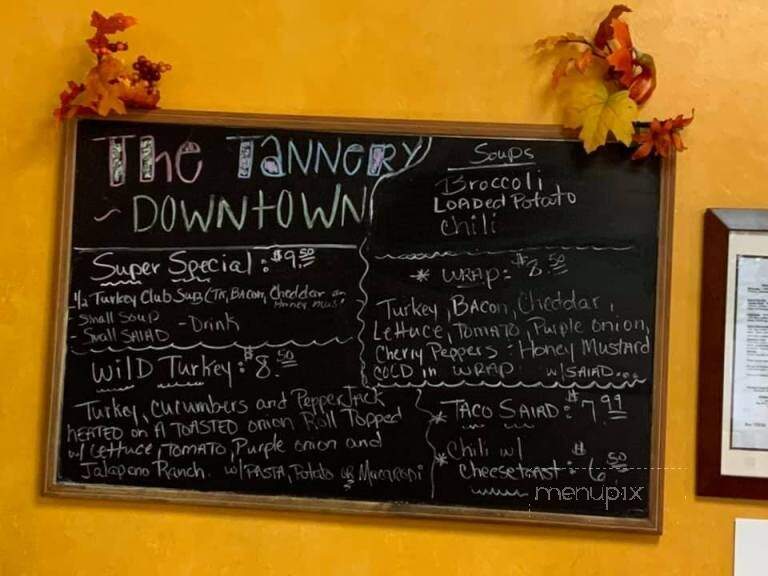 The Tannery
~ Downtown
Super Special: $9.50
1/2 Turkey Club Sub (TK, Bacon, Cheddar on
Honey Mus.
- Small Soup
- Small Salad - Drink
Wild Turkey: $8.50
Turkey, cucumbers and PepperJack
heated on a Toasted onion Roll Topped
w/ Lettuce, Tomato, Purple onion and
Jalapeno Ranch. w/ Pasta, Potato or Macaroni
Soups
Broccoli
Loaded Potato
Chili
* Wrap: $8.50
Turkey, Bacon, Cheddar,
Lettuce, Tomato, Purple onion,
Cherry Peppers : Honey Mustard
Cold in Wrap w/ Salad....
* Taco Salad: $7.99
* Chili w/
Cheesetoast: $6.50
menupix